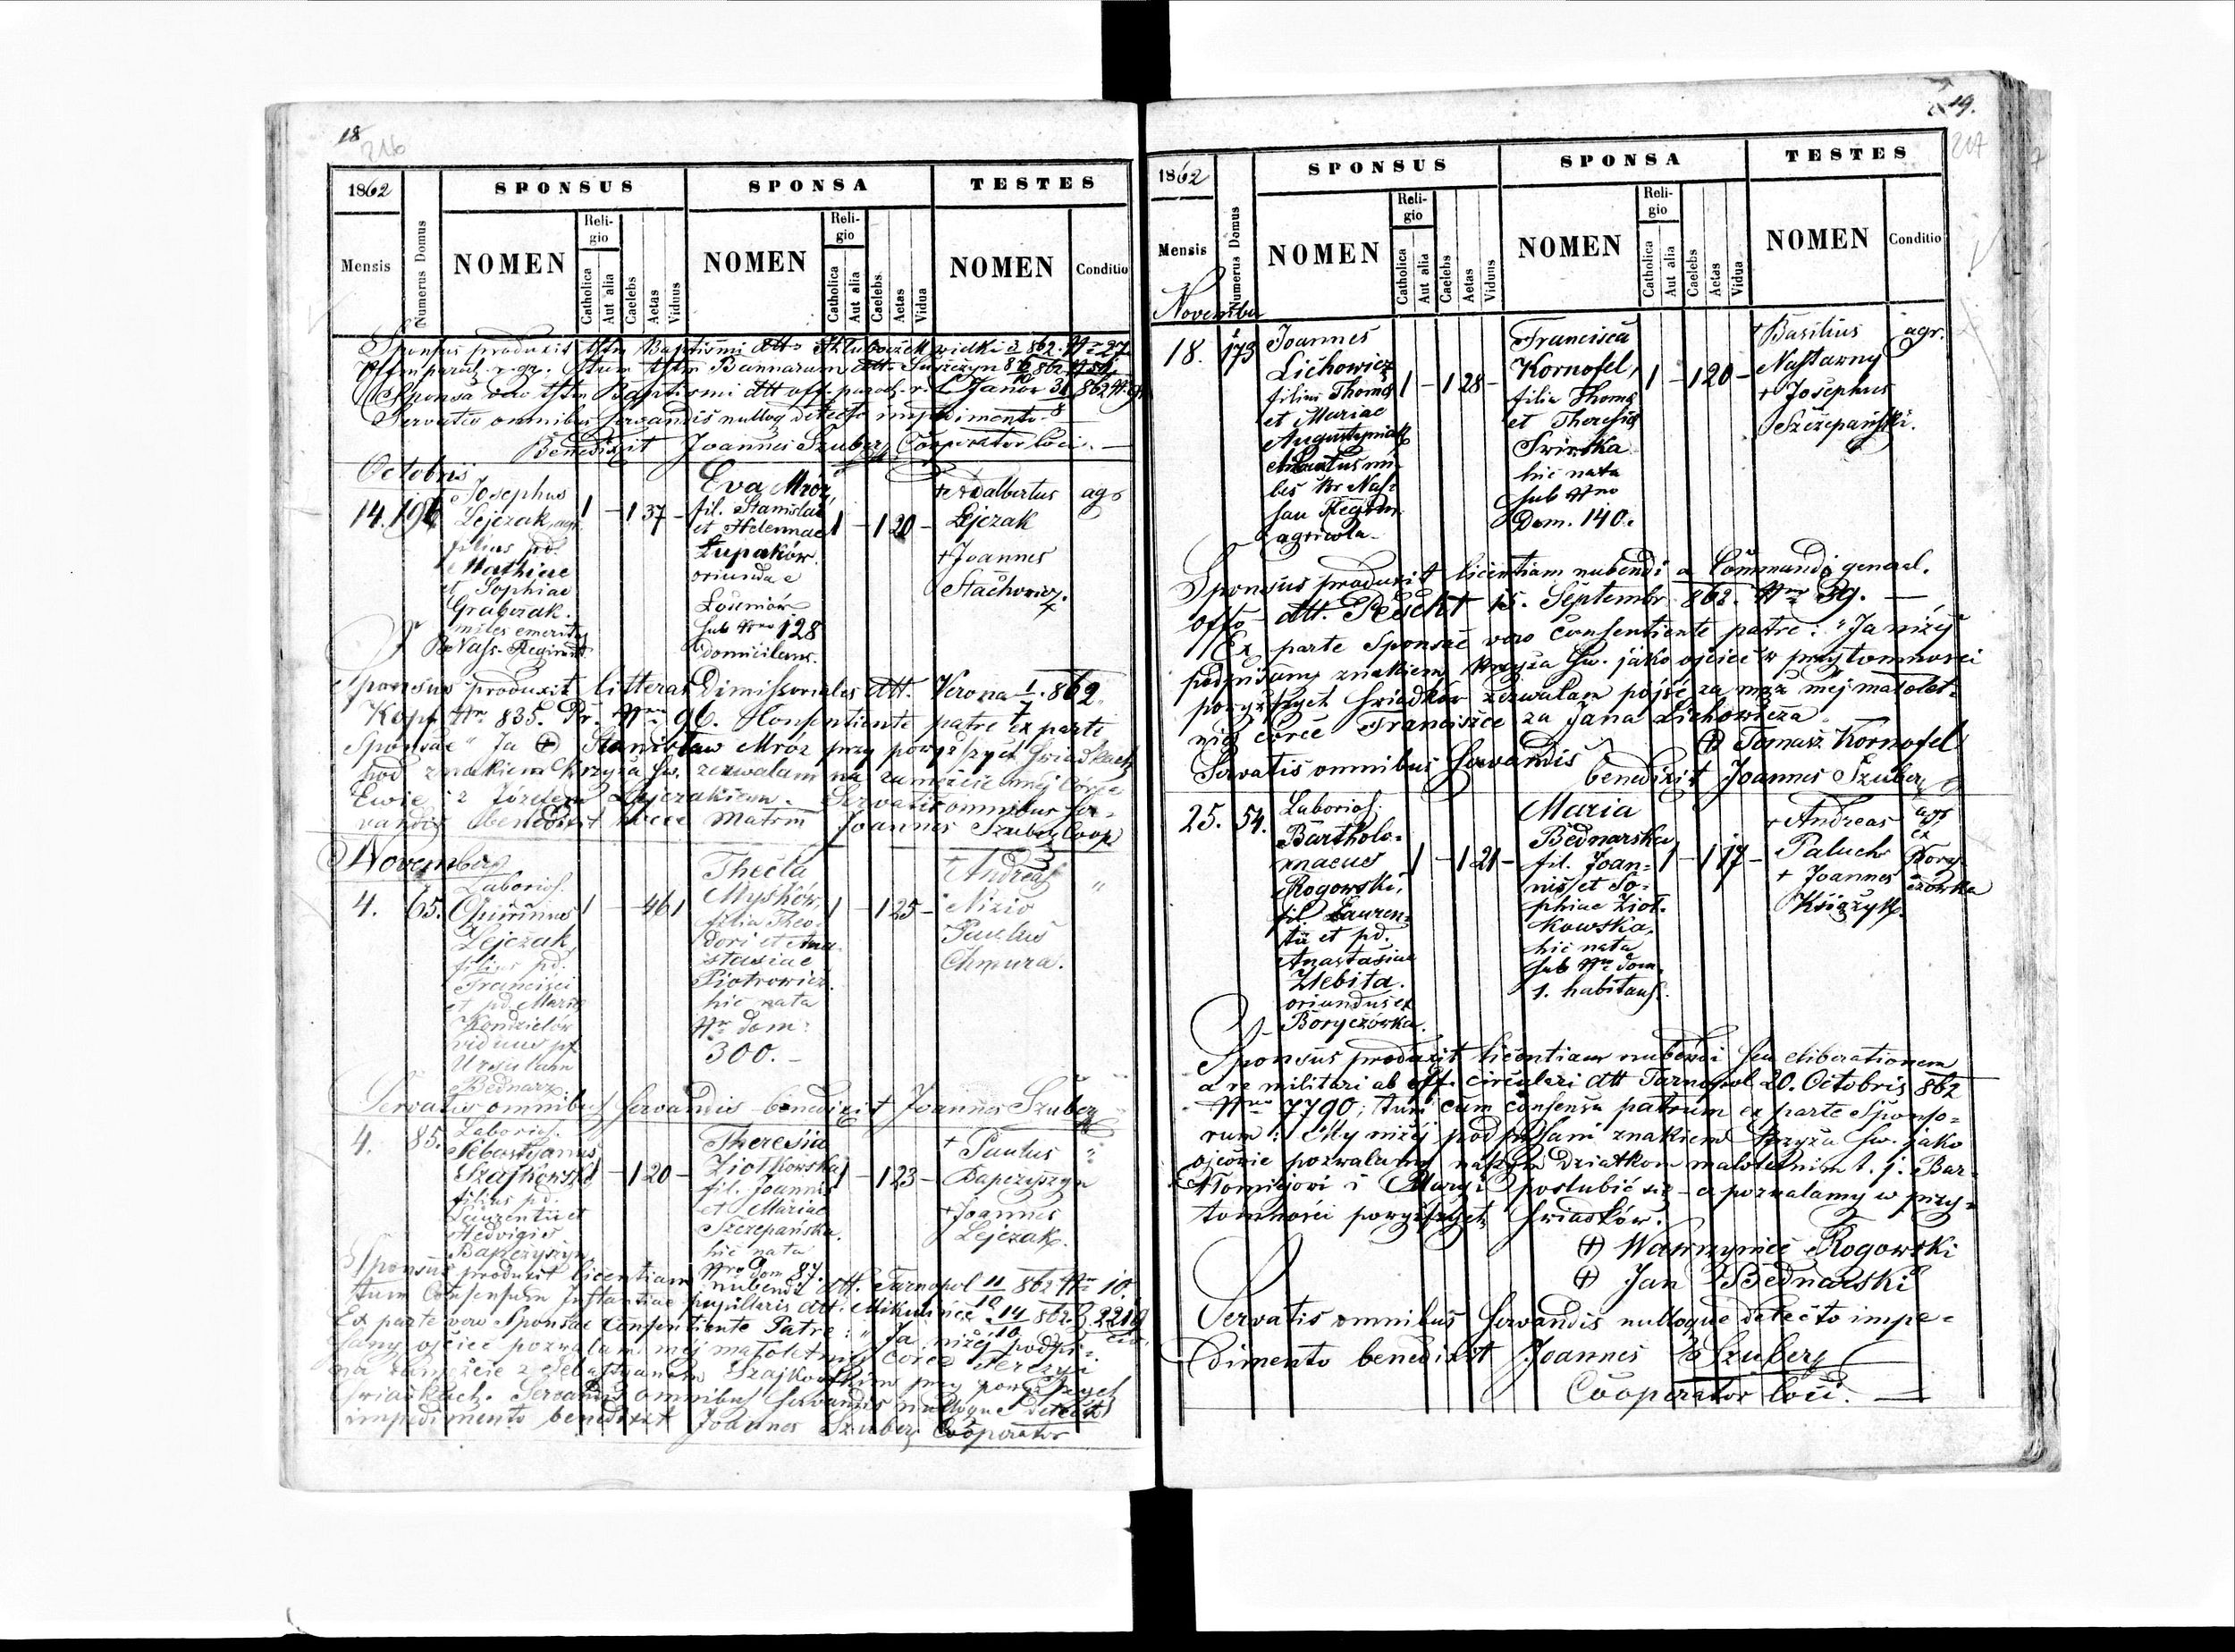 18
216
1862
SPONSUS
SPONSA
TESTES
Mensis
Numerus Domus
NOMEN
Religio
Catholica
Aut alia
Caelebs
Aetas
Viduus
NOMEN
Religio
Catholica
Aut alia
Caelebs
Aetas
Vidua
NOMEN
Conditio
Sponsus produxit Baptismi
Sponsa vero Baptismi
Servatis omnibus servandis nulloq detecto impedimento
Benedixit Joannes Szuber Cooperator loci.
Octobris
14.
Josephus
Lejczak
filius pd.
Mathiae
et Sophiae
Grabczak.
miles emeritus
1 - 1 37 -
Eva Mroz
fil. Stanislai
et Helennae
Łupaków
oriunda e
Łośniów
sub Nro 128
domicilians.
1 - 1 20 -
+ Adalbertus
Lejczak
+ Joannes
Stachowicz.
agr
Sponsus produxit litteras Dimissoriales dtt. Verona 862.
835. 96. Consentiente patre ex parte
Sponsae " Ja + Stanisław Mróz przy powyższych świadkach
pod znakiem Krzyża św. zezwalam na zamęście mej córce
Ewie z Józefem Lejczakiem. Servatis omnibus ser-
vandis benedixit Joannes Szuber Coop
November
4. 65.
Laborios.
Lejczak,
filius pd.
Francisci
et pd. Mariae
Kondziełów
viduus
Ursulam
Bednarz
1 - 46 1
Thecla
Myśków,
filia Theo-
dori et Ana-
stasiae
Piotrowicz.
hic nata
Nr dom:
300. -
1 - 1 25 -
+ Andreas
Nizio
Paulus
Chmura.
"
Servatis omnibus servandis benedixit Joannes Szuber
4. 85.
Laborios.
Sebastyanus
Szajkowski
filius pd.
Laurentii et
Hedvigis
Bapczyszyn
- 1 20 -
Theresia
Ziołkowska
fil. Joannis
et Mariae
Szczepańska.
hic nata
Nro Dom 87.
1 - 1 23 -
+ Paulus
Bapczyszyn
+ Joannes
Lejczak.
"
Sponsus produxit licentiam nubendi dtt. Tarnopol 11/10 862 Nr 10.
tum Consensum Instantiae pupillaris dtt. Mikulince 14/10 862. 2219
Ex parte vero Sponsae Consentiente Patre: " Ja niżej podpi-
sany ojciec pozwalam mej małoletniej córce Teresyi
na zamęście z Sebastyanem Szajkowskim przy powyższych
świadkach. Servatis omnibus servandis nulloque detecto
impedimento benedixit Joannes Szuber Cooperator
19.
217
1862
SPONSUS
SPONSA
TESTES
Mensis
Numerus Domus
NOMEN
Religio
Catholica
Aut alia
Caelebs
Aetas
Viduus
NOMEN
Religio
Catholica
Aut alia
Caelebs
Aetas
Vidua
NOMEN
Conditio
November
18. 173
Joannes
Lichowicz
filius Thomae
et Mariae
Augustyniak
agricola
1 - 1 28 -
Francisca
Kornofel,
filia Thomae
et Theresiae
hic nata
sub Nro
Dom. 140.
1 - 1 20 -
+ Basilius
Nastarny
+ Josephus
Szczepański.
agr.
Sponsus produxit licentiam nubendi a Commando general.
offo dtt. Pescht 15. Septembr 862. Nro 39. -
Ex parte Sponsae vero Consentiente patre: " Ja niżej
podpisany znakiem Krzyża św. jako ojciec w przytomności
powyższych świadków zezwalam pojść za mąż mej małolet-
niej córce Franciszce za Jana Lichowicza
+ Tomasz Kornofel
Servatis omnibus servandis benedixit Joannes Szuber
25. 54.
Laborios.
Bartholo-
maeus
Rogowski,
fil. Lauren-
tii et pd.
Anastasiae
Zlebita.
oriundus ex
Boryczówka.
1 - 1 21 -
Maria
Bednarska
fil. Joan-
nis et So-
phiae Ziół-
kowska,
hic nata
sub Nro Dom.
1. habitans.
1 - 1 17 -
+ Andreas
Paluch
+ Joannes
Książyk.
agr
ex
Bory-
czówka
Sponsus produxit licentiam nubendi seu eliberationem
a re militari ab off. circulari dtt Tarnopol 20. Octobris 862
Nro 7790; tum cum consensu patrum ex parte Sponso-
rum: My niżej podpisani znakiem Krzyża św. jako
ojcowie pozwalamy naszym dziatkom małoletnim t. j. Bar-
tłomiejowi i Maryi poslubić się - a pozwalamy w przy-
tomności powyższych świadków.
+ Wawrzyniec Rogowski
+ Jan Bednarski
Servatis omnibus servandis nulloque detecto impe-
dimento benedixit Joannes Szuber
Cooperator loci.